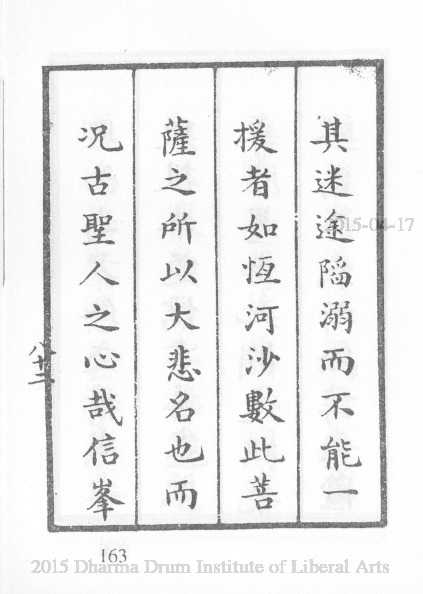 其迷途陷溺而不能一
援者如恆河沙數此菩
薩之所以大悲名也而
况古聖人之心哉信峯
八十二
163
2015-04-17
2015 Dharma Drum Institute of Liberal Arts